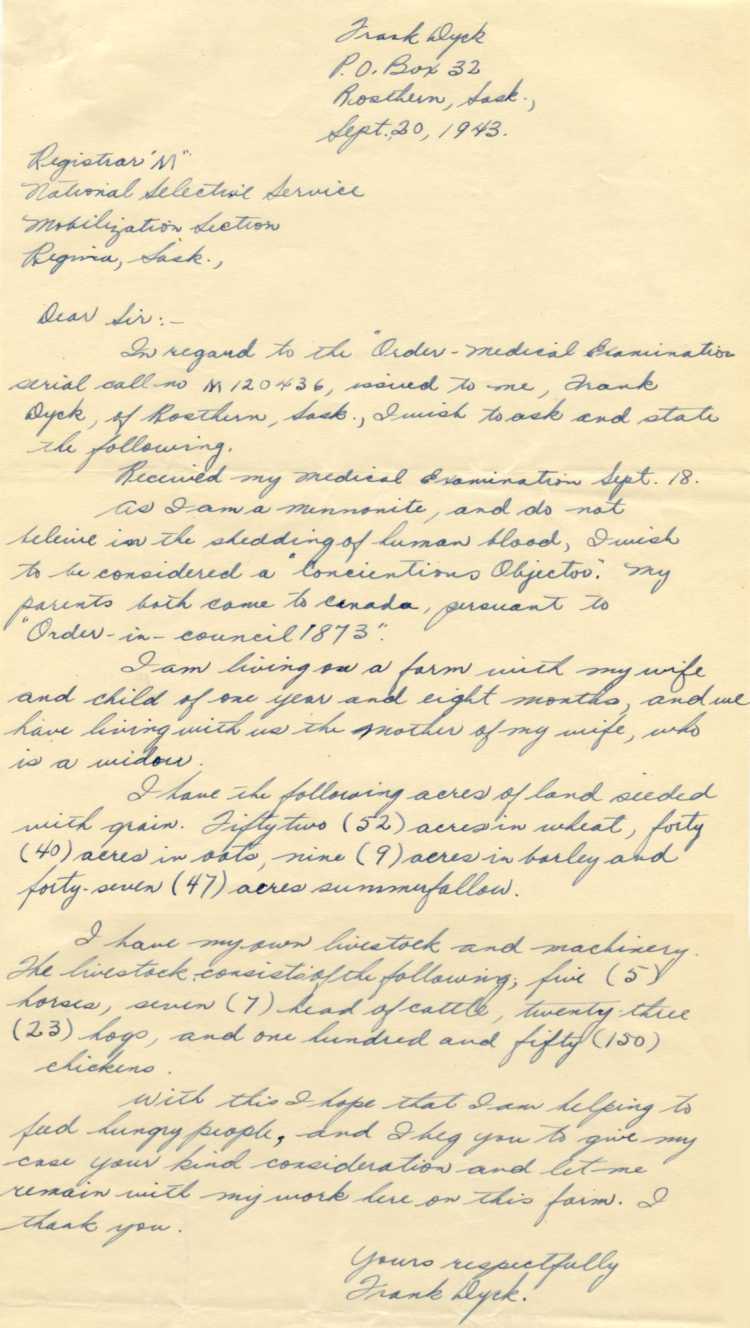 Frank Dyck
P.O. Box 32
Rosthern, Sask.,
Sept. 20, 1943.
Registrar "M"
National Selective Service
Mobilization Section
Regina, Sask.,
Dear Sir:-
In regard to the "Order-Medical Examination
serial call-no M120436, issued to me, Frank
Dyck, of Rosthern, Sask., I wish to ask and state
the following.
Received my Medical Examination Sept. 18.
As I am a Mennonite, and do not
beleive in the shedding of human blood, I wish
to be considered a "Concientious Objector". My
parents both came to Canada, persuant to
"Order-in-council 1873".
I am living on a farm with my wife
and child of one year and eight months, and we
have living with us the mother of my wife, who
is a widow.
I have the following acres of land seeded
with grain. Fifty two (52) acres in wheat, forty
(40) acres in oats, nine (9) acres in barley and
forty-seven (47) acres summerfallow.
I have my own livestock and machinery.
The livestock consists of the following; five (5)
horses, seven (7) head of cattle, twenty-three
(23) hogs, and one hundred and fifty (150)
chickens.
With this I hope that I am helping to
feed hungry people, and I beg you to give my
case your kind consideration and let me
remain with my work here on this farm. I
thank you.
Yours respectfully
Frank Dyck.